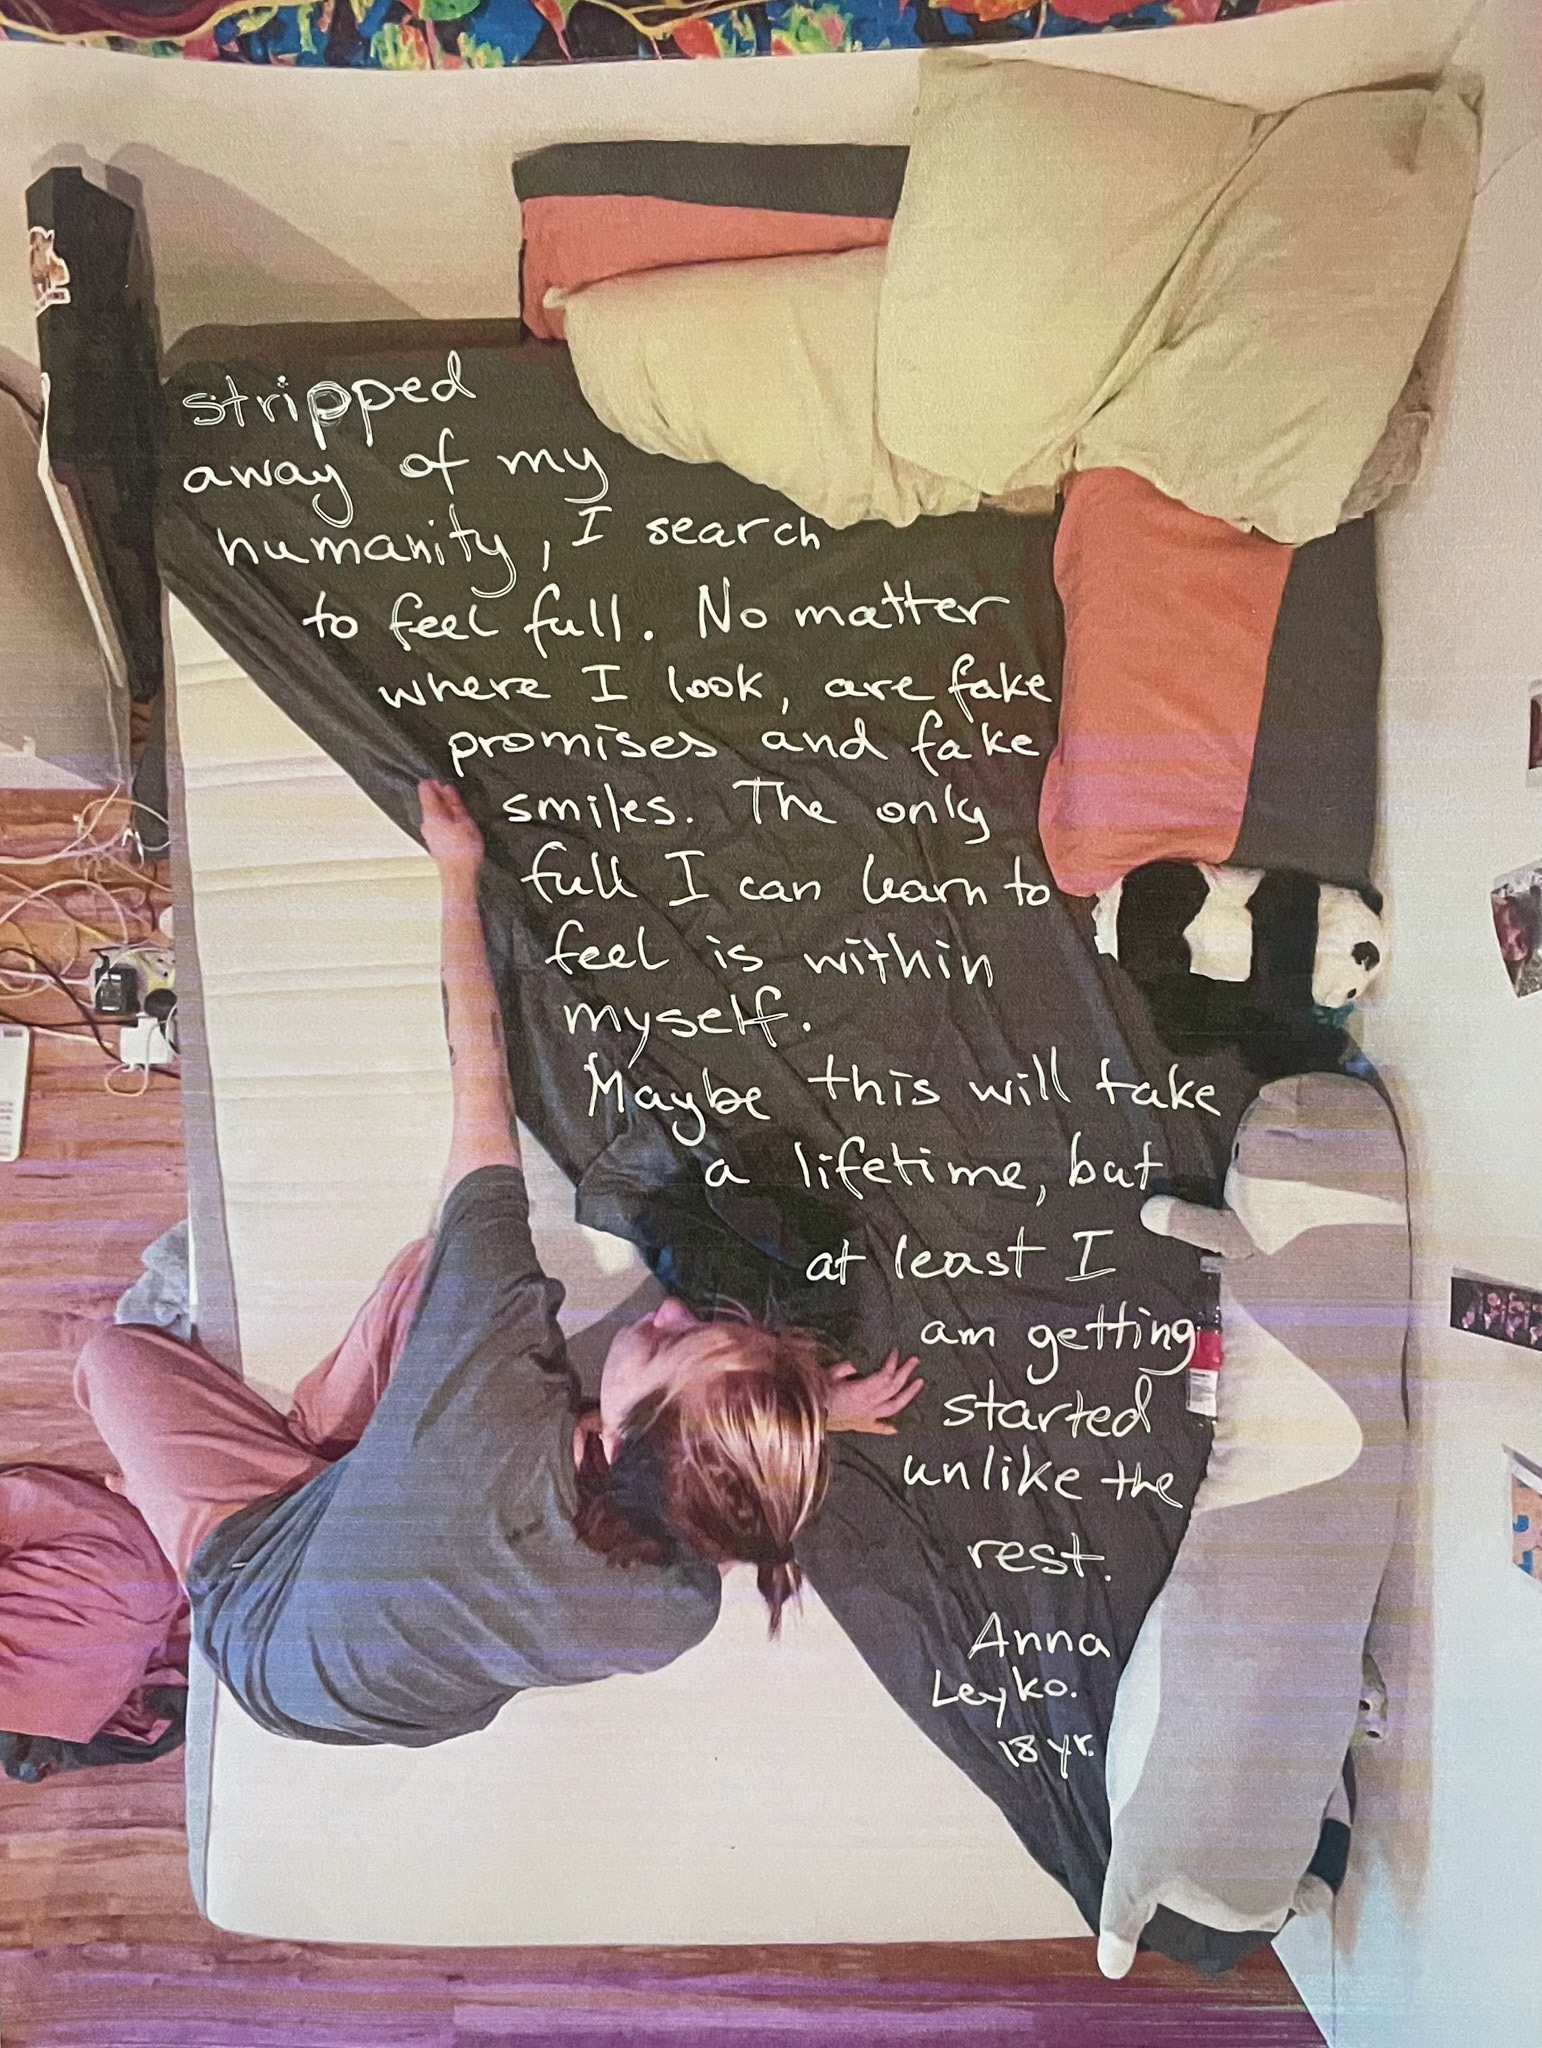 stripped
away of my
humanity, I search
to feel full. No matter
where I look, are fake
promises and fake
smiles. The only
full I can learn to
feel is within
myself.
Maybe this will take
a lifetime, but
at least I
am getting
started
unlike the
rest.
Anna
Leyko.
18 yr.